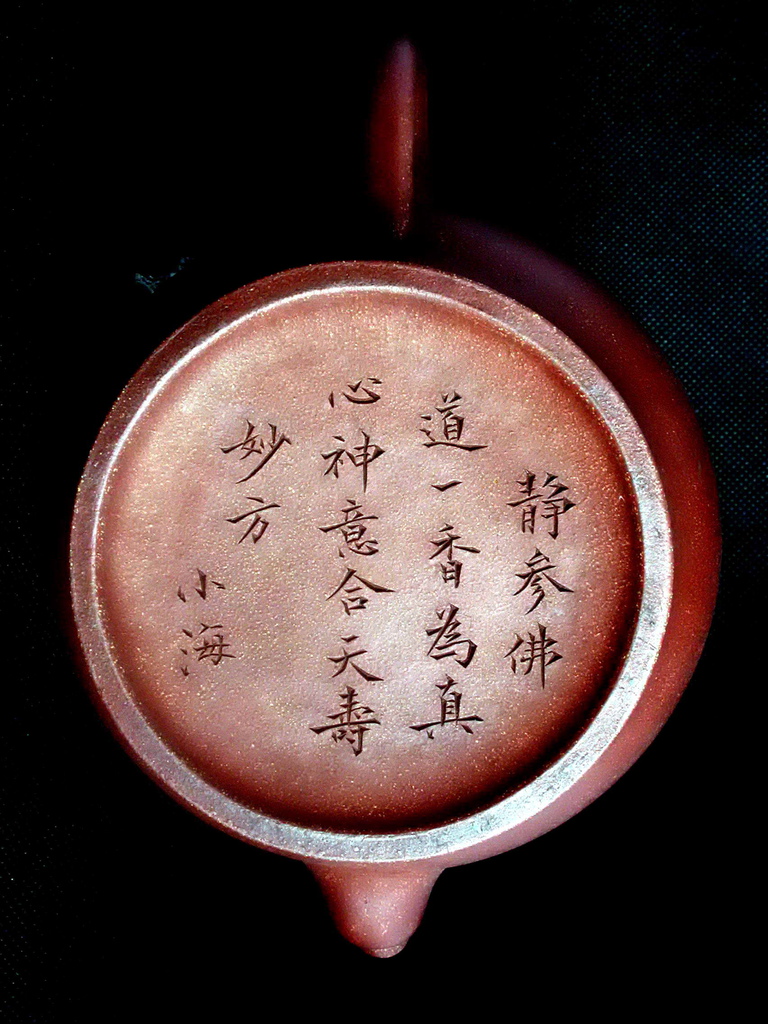 静参佛
道一香為真
心神意合天壽
妙方
小海